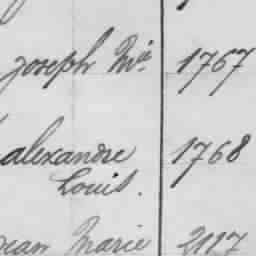 joseph Mie 1767
alexandre 1768
Louis.
jean Marie 2117